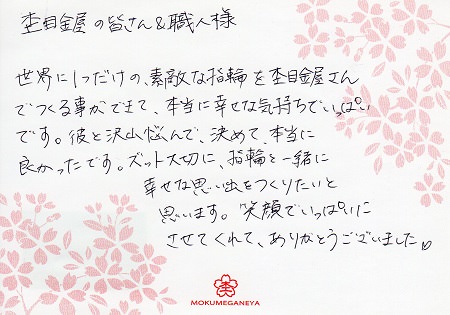 杢目金屋の皆さん&職人様
世界に1つだけの、素敵な指輪を杢目金屋さん
でつくる事ができて、本当に幸せな気持ちでいっぱい
です。彼と沢山悩んで、決めて、本当に
良かったです。ズット大切に、指輪と一緒に
幸せな思い出をつくりたいと
思います。笑顔でいっぱいに
させてくれて、ありがとうございました♡
杢
MOKUMEGANEYA